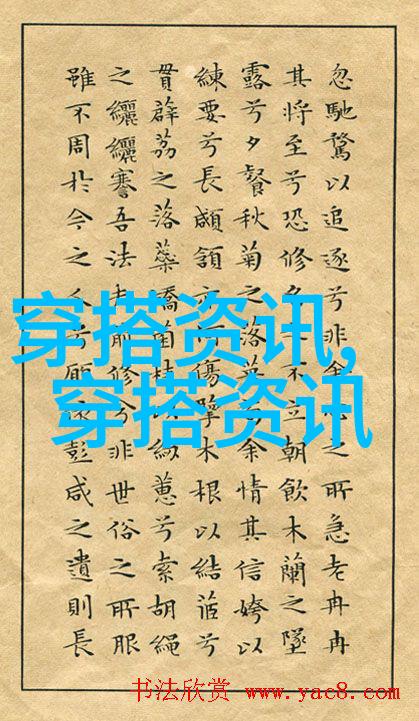 忽馳騖以追逐兮非之所急老冉冉
其將至兮恐修不立朝飲木蘭之墜
露兮夕餐秋菊之落英余情其信姱以
練要兮長顑頷亦傷擥木根以結茝兮
貫薜荔之落蕊矯菌桂紉蕙兮索胡繩
之纚纚謇吾法夫前修兮非世俗之所服
雖不周於今之人兮願彭咸之遺則長
穿搭资讯,
穿搭资讯
书法欣赏 www.yac8.com